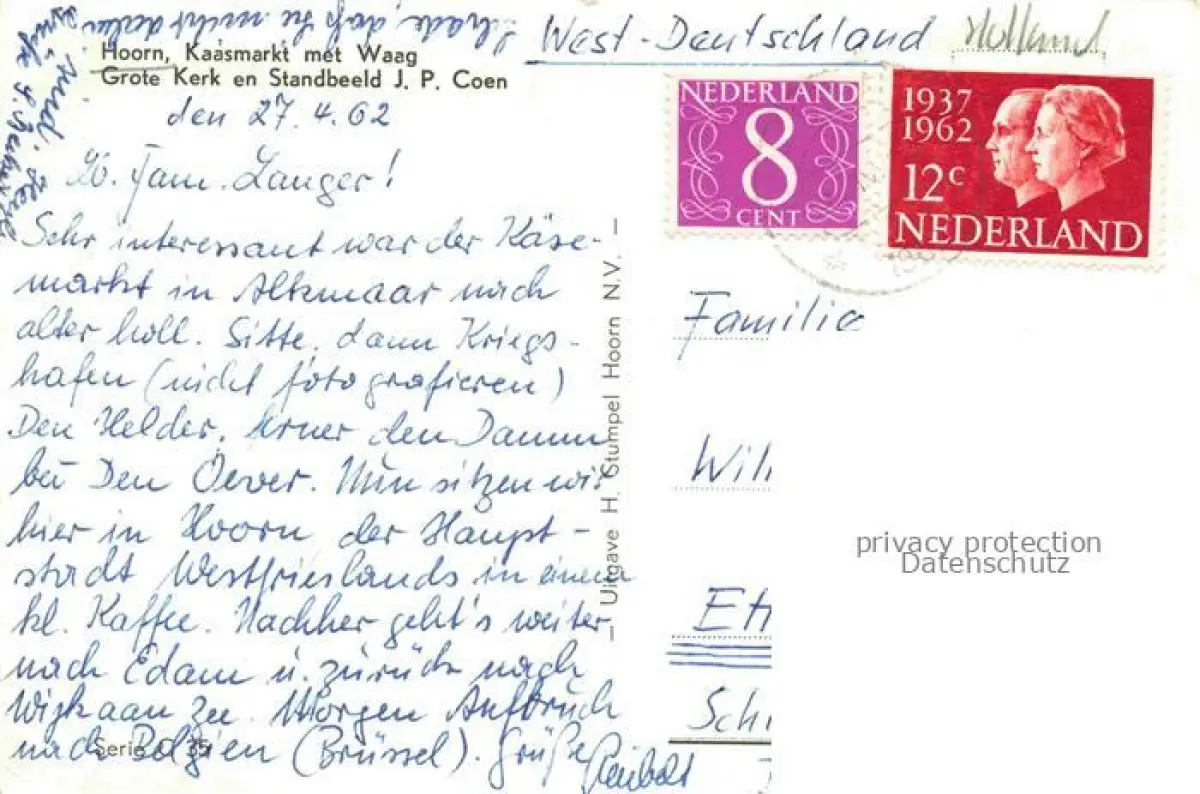 West-Deutschland Holland
Schade, daß Sie nicht dabei
sind. Herzl.
Grüße
Hoorn, Kaasmarkt met Waag
Grote Kerk en Standbeeld J. P. Coen
den 27.4.62
Lb. Fam. Langer!
Sehr interessant war der Käse-
markt in Alkmaar nach
alter holl. Sitte, dann Kriegs-
hafen (nicht fotografieren)
Den Helder, ferner den Damm
bei Den Oever. Nun sitzen wir
hier in Hoorn der Haupt-
stadt Westfrieslands in einem
kl. Kaffee. Nachher geht's weiter
nach Edam u. zurück nach
Wijkaan Zee. Morgen Aufbruch
nach Belgien (Brüssel). Grüße
Serie 35
— Uitgave H. Stumpel Hoorn N.V. —
NEDERLAND
8
CENT
1937
1962
12c
NEDERLAND
Familie
Wil
Et
Sch
privacy protection
Datenschutz